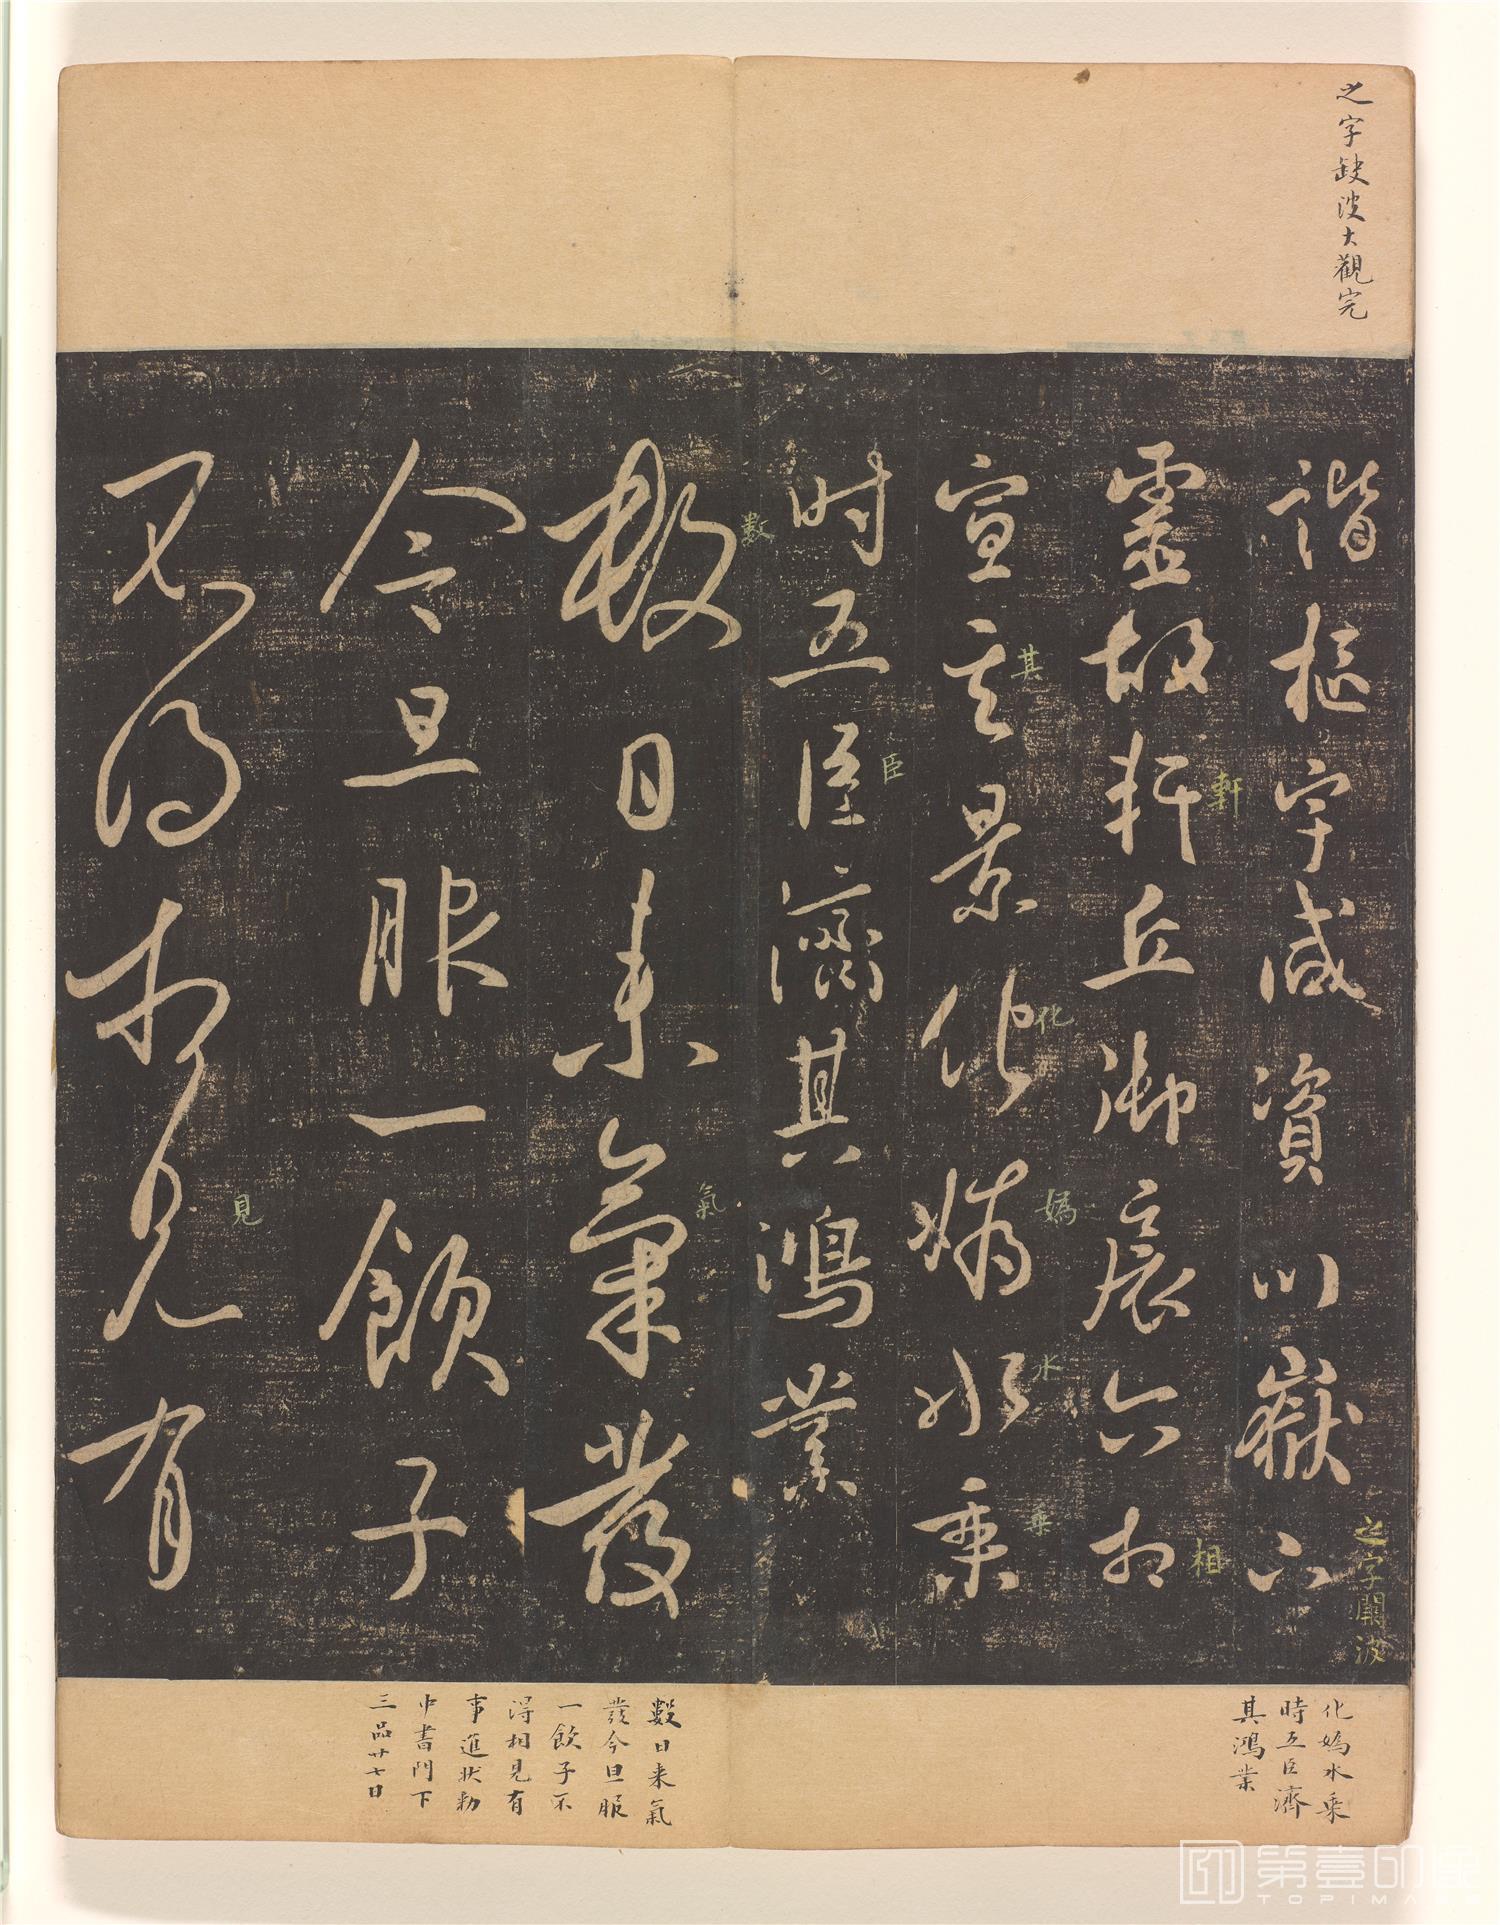 之字缺波大觀完
諧樞宇咸資川嶽之
之字闕波
靈故軒丘御扆六相
軒
相
宣其景化媯水乘
其
化
媯
水
乘
时五臣濟其鴻業
臣
數日来氣發
數
氣
今旦服一飲子
不得相見有
見
化媯水乘
時五臣濟
其鴻業
數日来氣
發今旦服
一飲子不
得相見有
事進狀勑
中書門下
三品廿七日
第壹印像
TOPIMAGE